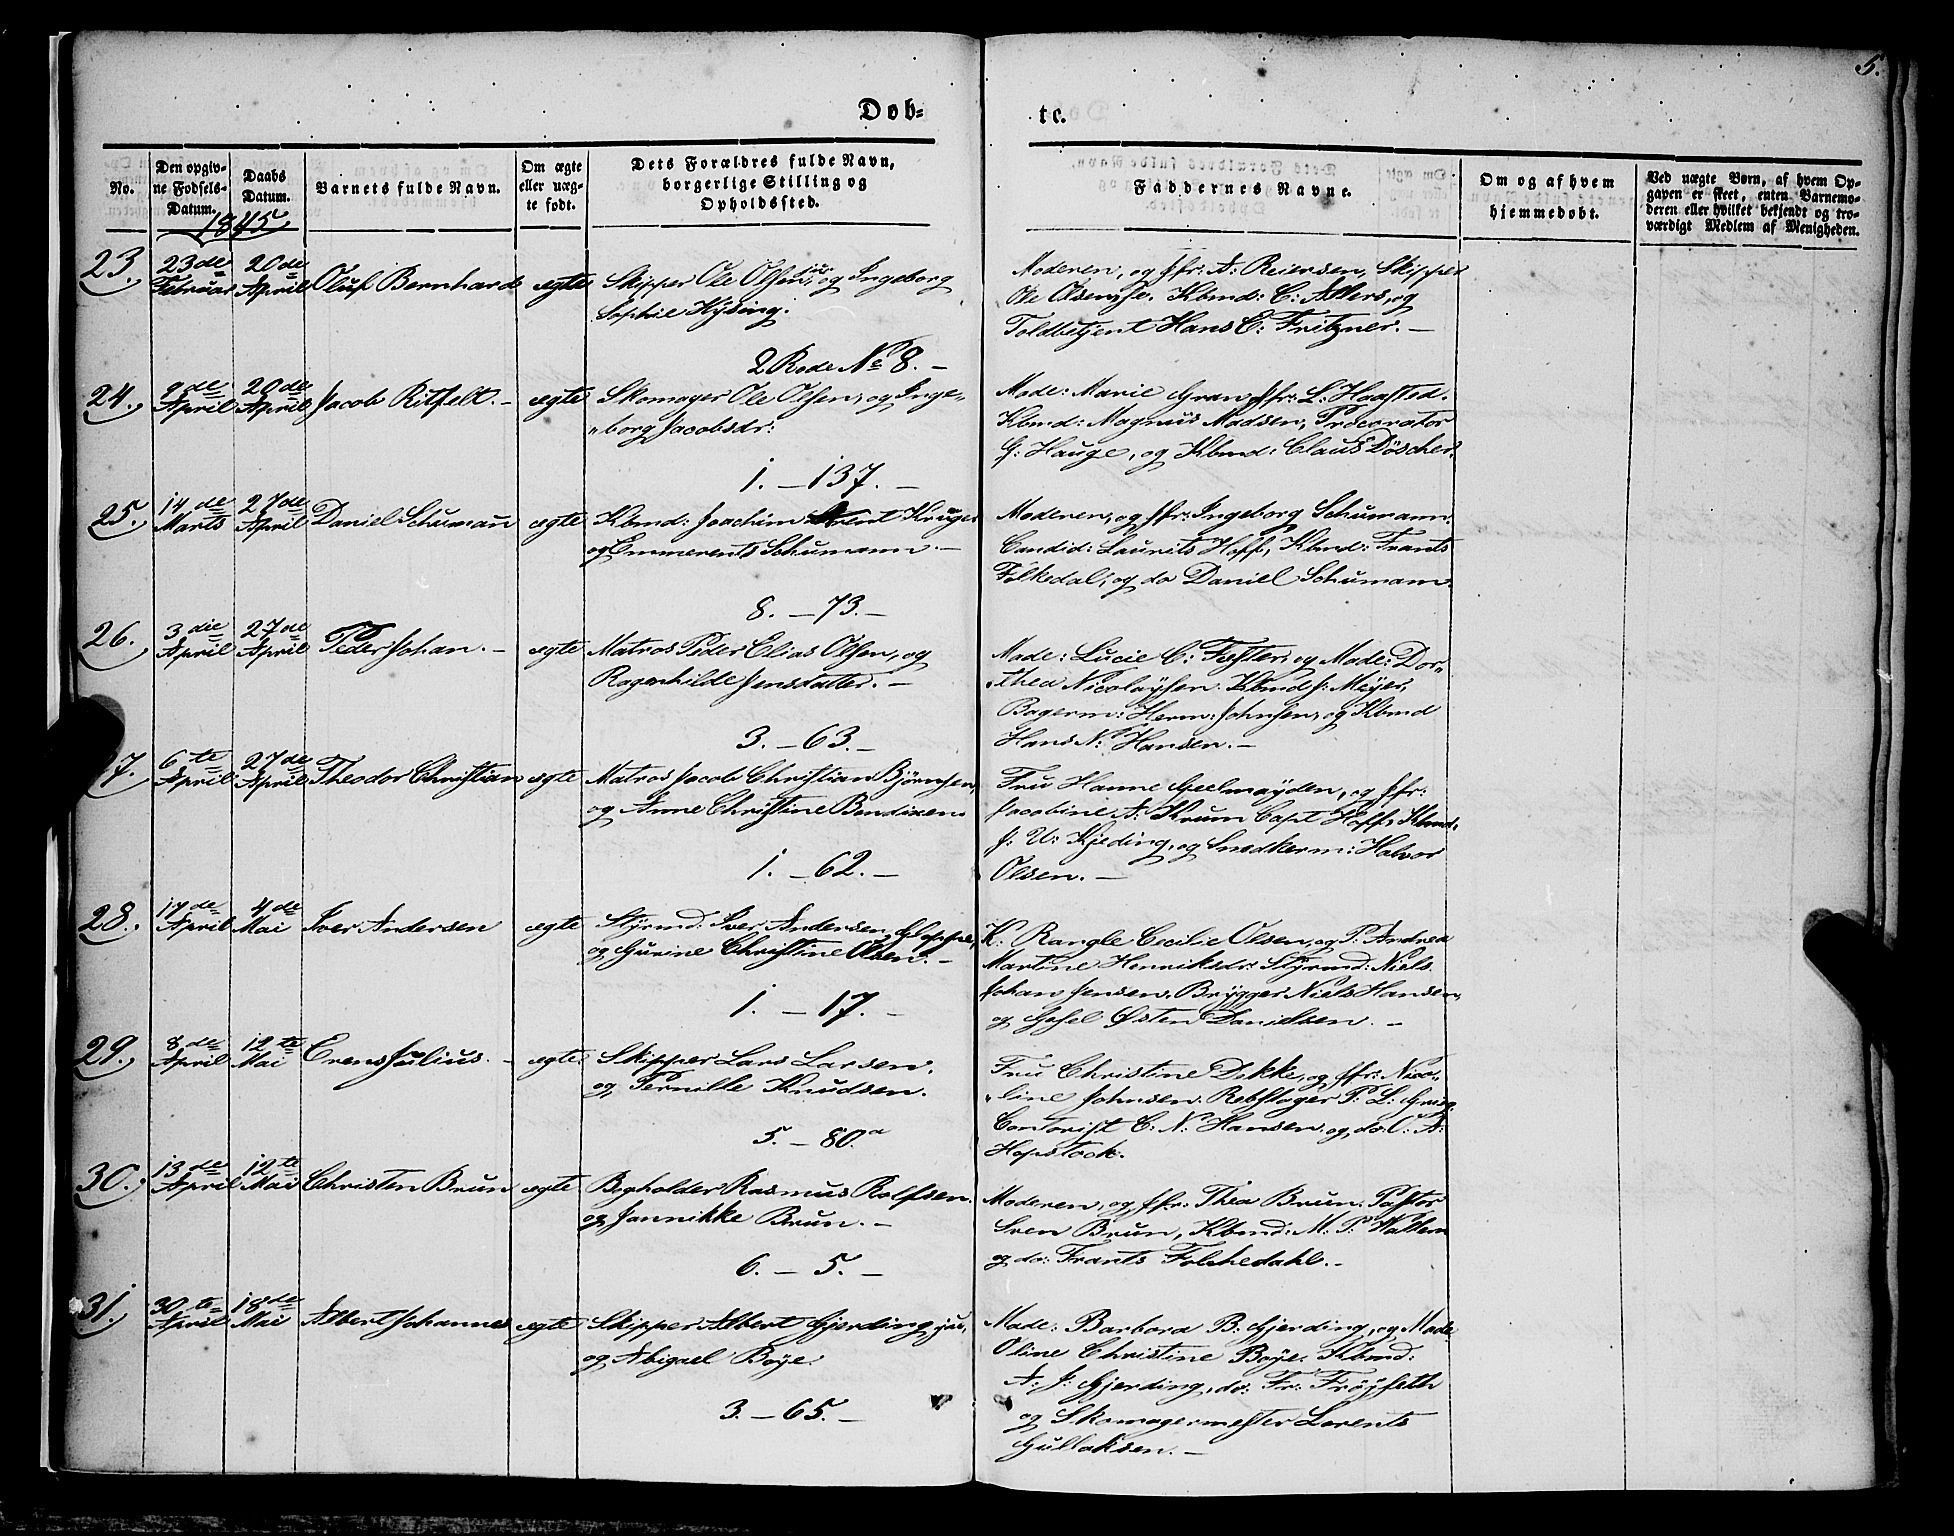 5.
Døb-
te.
No.
Den opgiv-
ne Fødsels-
Datum.
Daabs
Datum.
Barnets fulde Navn.
Om ægte
eller uæg-
te født.
Dets Forældres fulde Navn,
borgerlige Stilling og
Opholdssted.
Faddernes Navne.
Om og af hvem
hjemmedøbt.
Ved uægte Børn, af hvem Op-
gaven er skeet, enten Barnemo-
deren eller hvilket bekjendt og tro-
værdigt Medlem af Menigheden.
1845
23. 23de Februar 20de April Oluf Bernhard ægte Skipper Ole Olsen jür og Ingeborg
Sophie Hysing.
2 Rode No 8. –
Moderen, og Jfr: A: Reiersen, Skipper
Ole Olsen se. Kbmd: C: Ahlers, og
Toldbetjent Hans C: Fritzner. –
24. 9de April 20de April Jacob Ritfelt. – ægte Skomager Ole Olsen, og Inge-
borg Jacobsdr:
1. – 137. –
Made: Marie Gran Jfr: L: Haasted.
Kbmd: Magnus Madsen, Procurator
G: Hauge, og Kbmd: Claus Döscher.
25. 14de Marts 27de April Daniel Schumann ægte Kbmd: Joachim Arent Krüger
og Emmerents Schumann. –
8. – 73. –
Moderen, og Jfr: Ingeborg Schumann.
Candid: Laurits Hoff, Kbmd: Frants
Folkedal, og do Daniel Schumann.
26. 3die April 27de April Peder Johan. – ægte Matros Peder Elias Olsen, og
Ragenhilde Jensdatter. –
3. – 63. –
Made: Lucie C: Faster, og Made: Dor-
thea Nicolaysen. Kbmd J: Meyer,
Bagerm: Herm: Johnsen, og Kbmd
Hans N: Hansen. –
7. 6te April 27de April Theodor Christian ægte Matros Jacob Christian Bjørnsen,
og Anne Christine Bendixen.
1. – 62. –
Fru Hanne Geelmüyden, og Jfr:
Jacobine A: Krum Capt Hoff, Kbmd:
J: U: Kjeding, og Snedkerm: Halvor
Olsen. –
28. 17de April 4de Mai Iver Andersen ægte Styrmd: Iver Andersen Gloppe,
og Gurine Christine Olsen. –
1. – 17. –
K: Rangle Cecilie Olsen, og P: Andrea
Martine Henriksdr: Styrmd: Niels
Johan Jensen, Brygger Niels Hansen,
og Gesel Østen Danielsen. –
29. 8de April 12te Mai Erens Julius. – ægte Skipper Lars Larsen,
og Pernille Knudsen.
5. – 80.a
Fru Christine Dekke, og Jfr: Nico-
line Johnsen. Rebslager P: L: Grieg
Contorist C: N: Hansen og do: C: A:
Hopstock.
30. 13de April 12te Mai Christen Brun ægte Bogholder Rasmus Rolfsen.
og Jannikke Brun. –
6. – 5. –
Moderen, og Jfr: Thea Brun. Pastor
Sven Brun, Kbmd: M: P: Wallem
og do: Frants Folchedahl. –
31. 30te April 18de Mai Albert Johannes ægte Skipper Albert Gjerding jun,
og Abigael Boye.
3. – 65. –
Made: Barbora B: Gjerding, og Made
Oline Christine Boye. Kbmd:
A: J: Gjerding, do: Fr: Frøyseth
og Skomagermester Lorents
Gullaksen. –